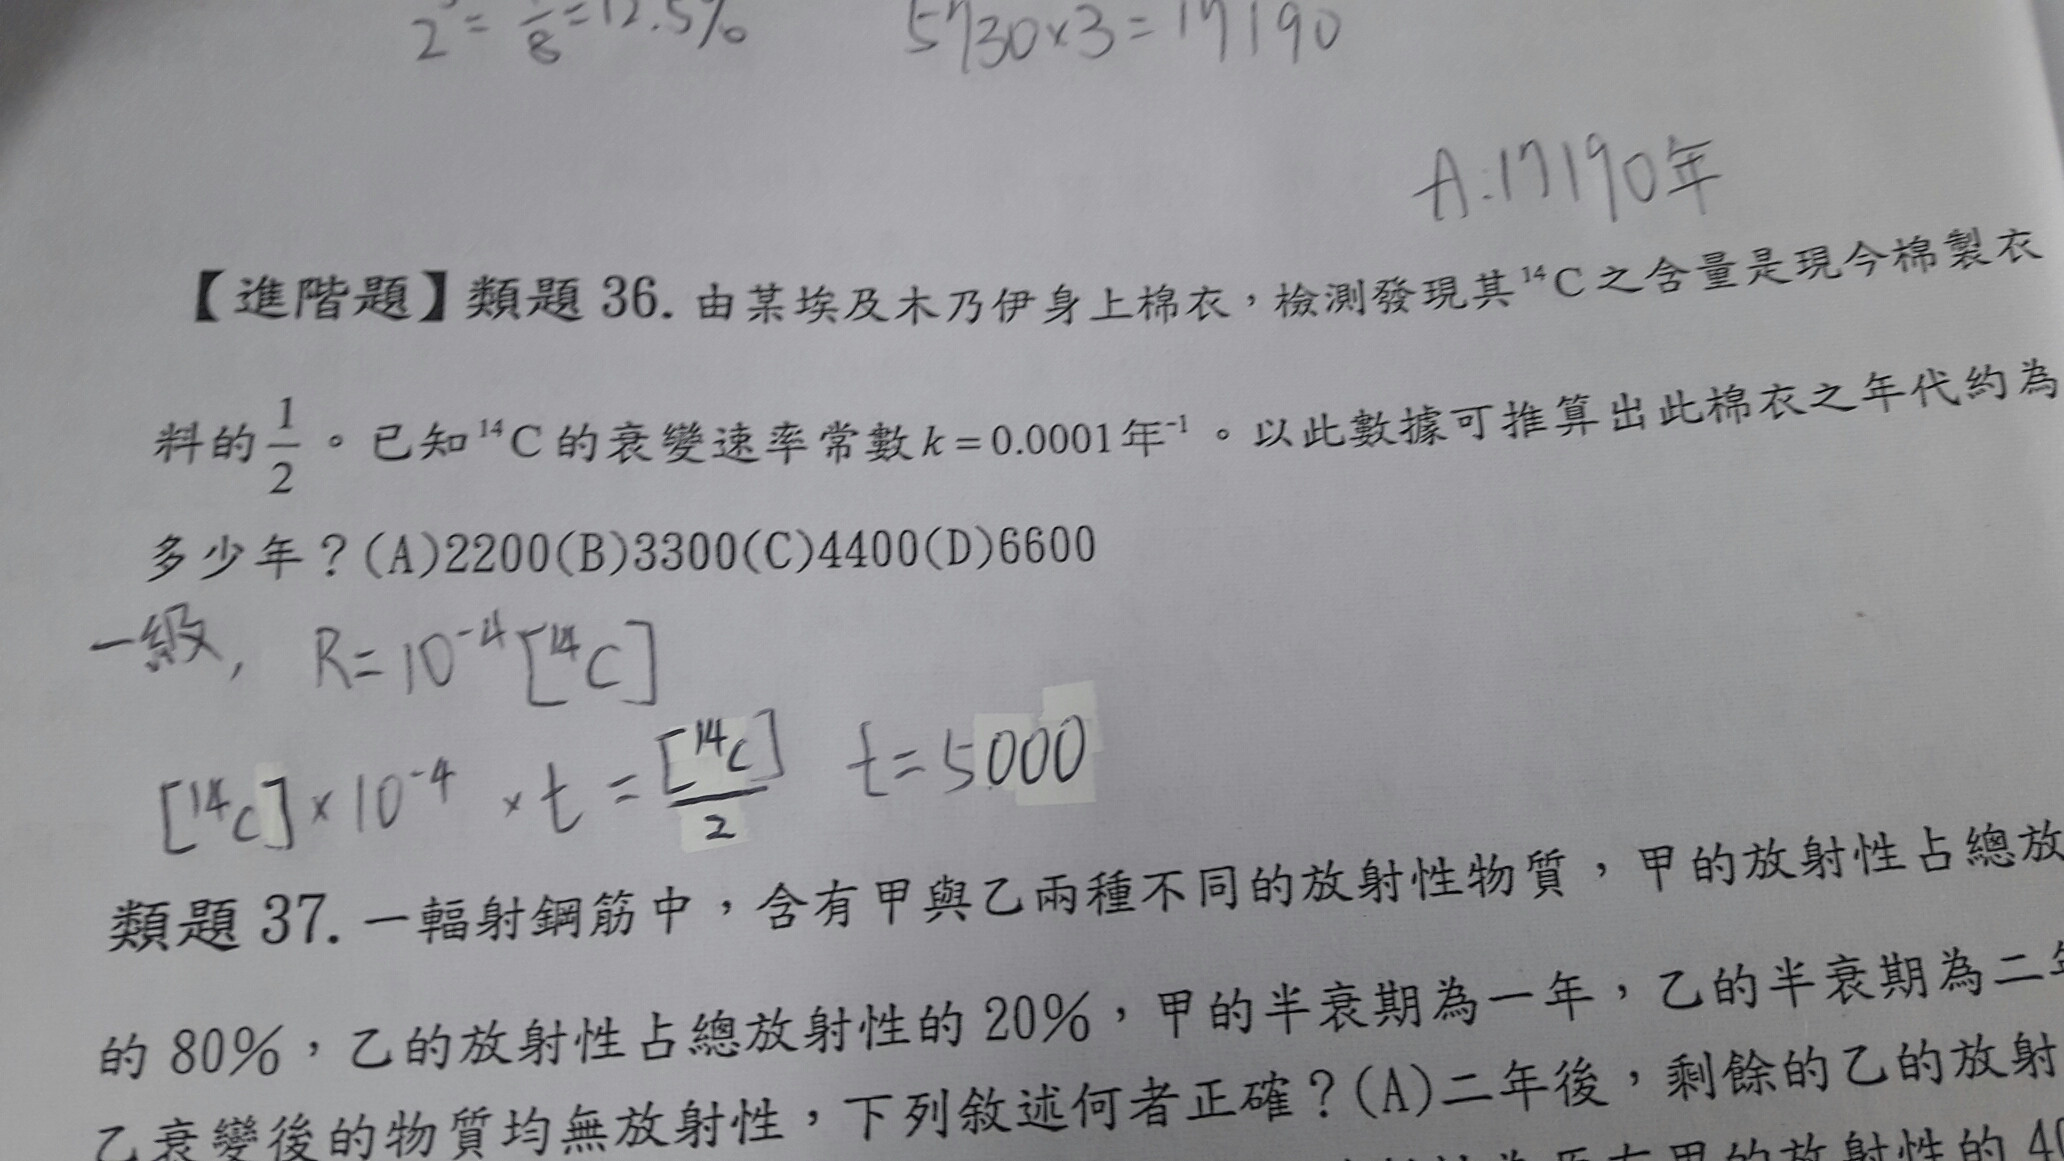 2³ = 1/8 = 12.5% 5730×3=17190
A:17190年
【進階題】類題 36. 由某埃及木乃伊身上棉衣,檢測發現其¹⁴C之含量是現今棉製衣
料的 1/2 。已知¹⁴C的衰變速率常數k=0.0001年⁻¹。以此數據可推算出此棉衣之年代約為
多少年?(A)2200(B)3300(C)4400(D)6600
一級, R=10⁻⁴[¹⁴C]
[¹⁴C]×10⁻⁴ ×t = [¹⁴C]/2 t=5000
類題 37. 一輻射鋼筋中,含有甲與乙兩種不同的放射性物質,甲的放射性占總放
的 80%,乙的放射性占總放射性的 20%,甲的半衰期為一年,乙的半衰期為二年
乙衰變後的物質均無放射性,下列敘述何者正確?(A)二年後,剩餘的乙的放射
原有甲的放射性的 40